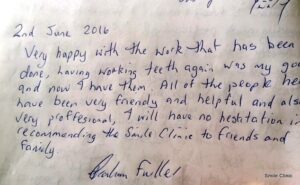 2nd June 2016
Very happy with the work that has been
done, having working teeth again was my goa
and now I have them. All of the people he
have been very friendly and helpful and als
very proffesional, I will have no hesitation i
recommending the Smile Clinic to friends and
family.
Smile Clinic